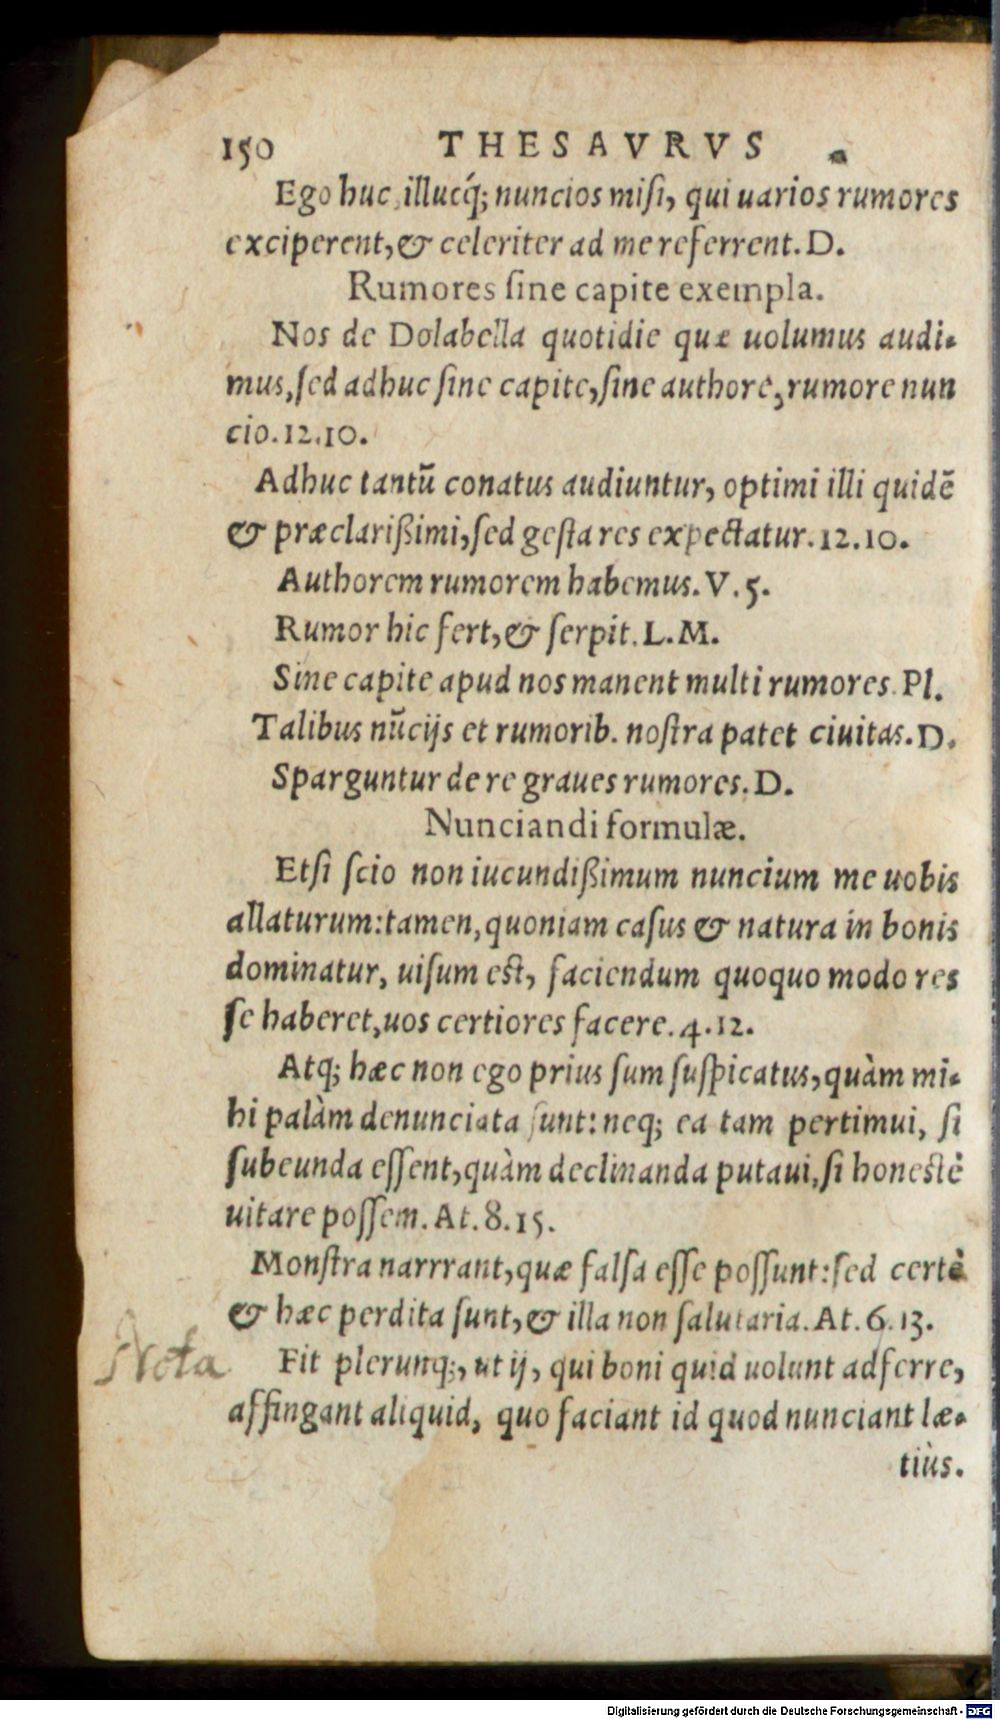 150 THESAVRVS
Ego huc, illucq́; nuncios miſi, qui uarios rumores
exciperent, & celeriter ad me referrent. D.
Rumores ſine capite exempla.
Nos de Dolabella quotidie quæ uolumus audi-
mus, ſed adhuc ſine capite, ſine authore, rumore nun
cio. 12.10.
Adhuc tantũ conatus audiuntur, optimi illi quidẽ
& præclarißimi, ſed geſta res expectatur. 12.10.
Authorem rumorem habemus. V. 5.
Rumor hic fert, & ſerpit. L. M.
Sine capite apud nos manent multi rumores. Pl.
Talibus nũcijs et rumorib. noſtra patet ciuitas. D.
Sparguntur de re graues rumores. D.
Nunciandi formulæ.
Etſi ſcio non iucundißimum nuncium me uobis
allaturum: tamen, quoniam caſus & natura in bonis
dominatur, uiſum eſt, faciendum quoquo modo res
ſe haberet, uos certiores facere. 4.12.
Atq; hæc non ego prius ſum ſuſpicatus, quàm mi-
hi palàm denunciata ſunt: neq; ea tam pertimui, ſi
ſubeunda eſſent, quàm declinanda putaui, ſi honeſtè
uitare poſſem. At. 8.15.
Monſtra narrrant, quæ falſa eſſe poſſunt: ſed certè
& hæc perdita ſunt, & illa non ſalutaria. At. 6.13.
Nota Fit plerunq;, ut ij, qui boni quid uolunt adferre,
affingant aliquid, quo faciant id quod nunciant læ-
tiùs.
Digitalisierung gefördert durch die Deutsche Forschungsgemeinschaft - DFG